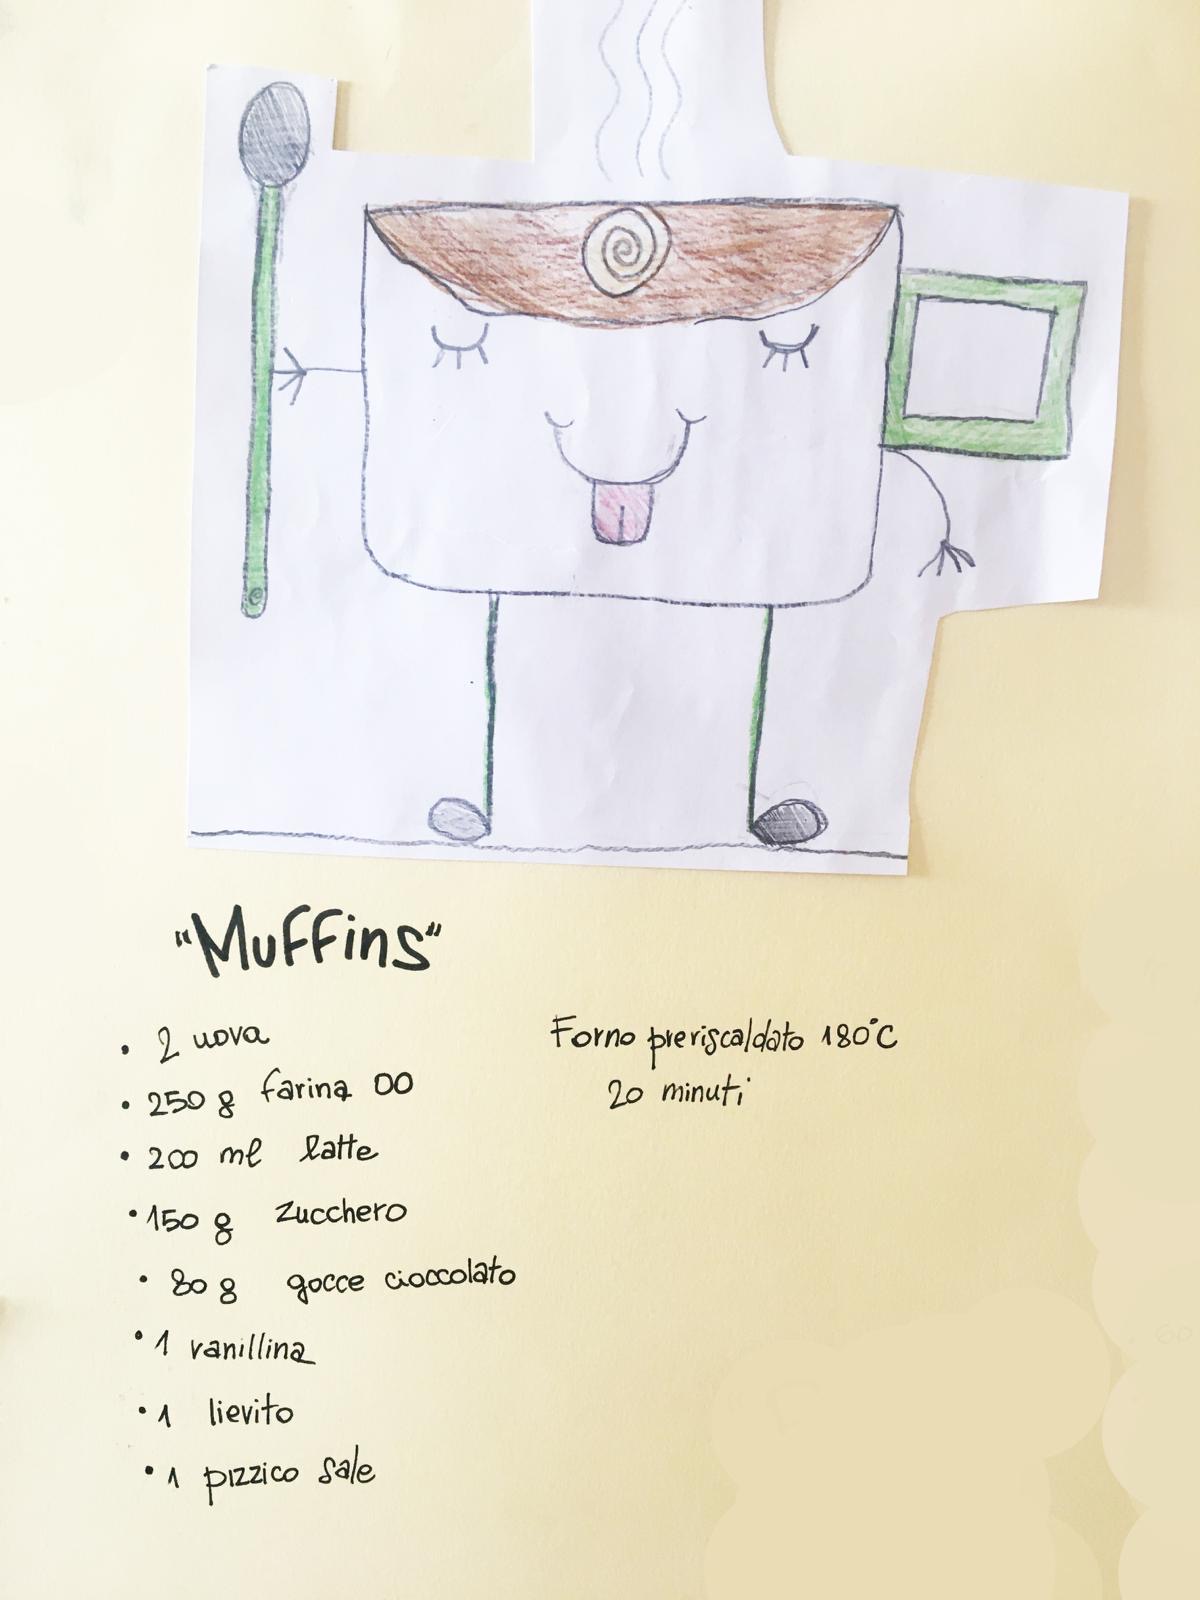 "Muffins"
• 2 uova
• 250 g farina 00
• 200 ml latte
• 150 g zucchero
• 80 g gocce cioccolato
• 1 vanillina
• 1 lievito
• 1 pizzico sale
Forno preriscaldato 180°C
20 minuti